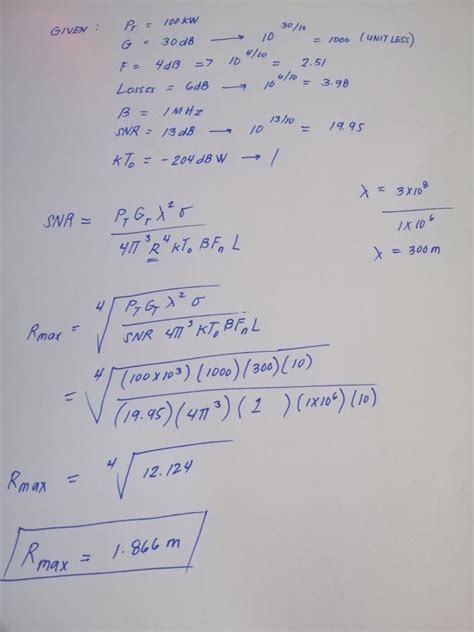 GIVEN : PT = 100KW
G = 30dB → 10^30/10 = 1000 (UNITLESS)
F = 4dB => 10^4/10 = 2.51
Losses = 6dB → 10^6/10 = 3.98
B = 1MHz
SNR = 13dB → 10^13/10 = 19.95
KTo = -204dBW → 1
λ = 3×10^8 / 1×10^6
λ = 300m
SNR = PT GT λ² σ / 4π³ R⁴ KTo BFn L
Rmax = ⁴√ PT GT λ² σ / SNR 4π³ KTo BFn L
= ⁴√ (100×10³)(1000)(300)(10) / (19.95)(4π³)(1 )(1×10⁶)(10)
Rmax = ⁴√12.124
Rmax = 1.866 m